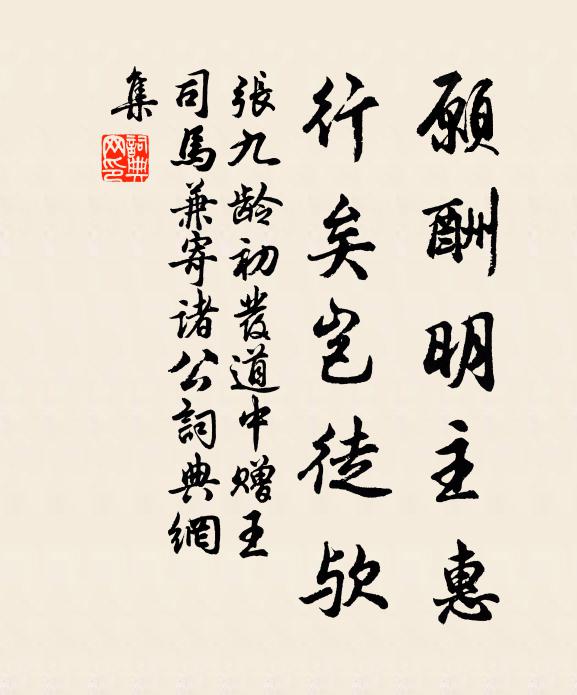 願酬明主惠
行矣豈徒欤
張九龄初發道中赠王
司馬兼寄諸公詞典網
集
詞典网印